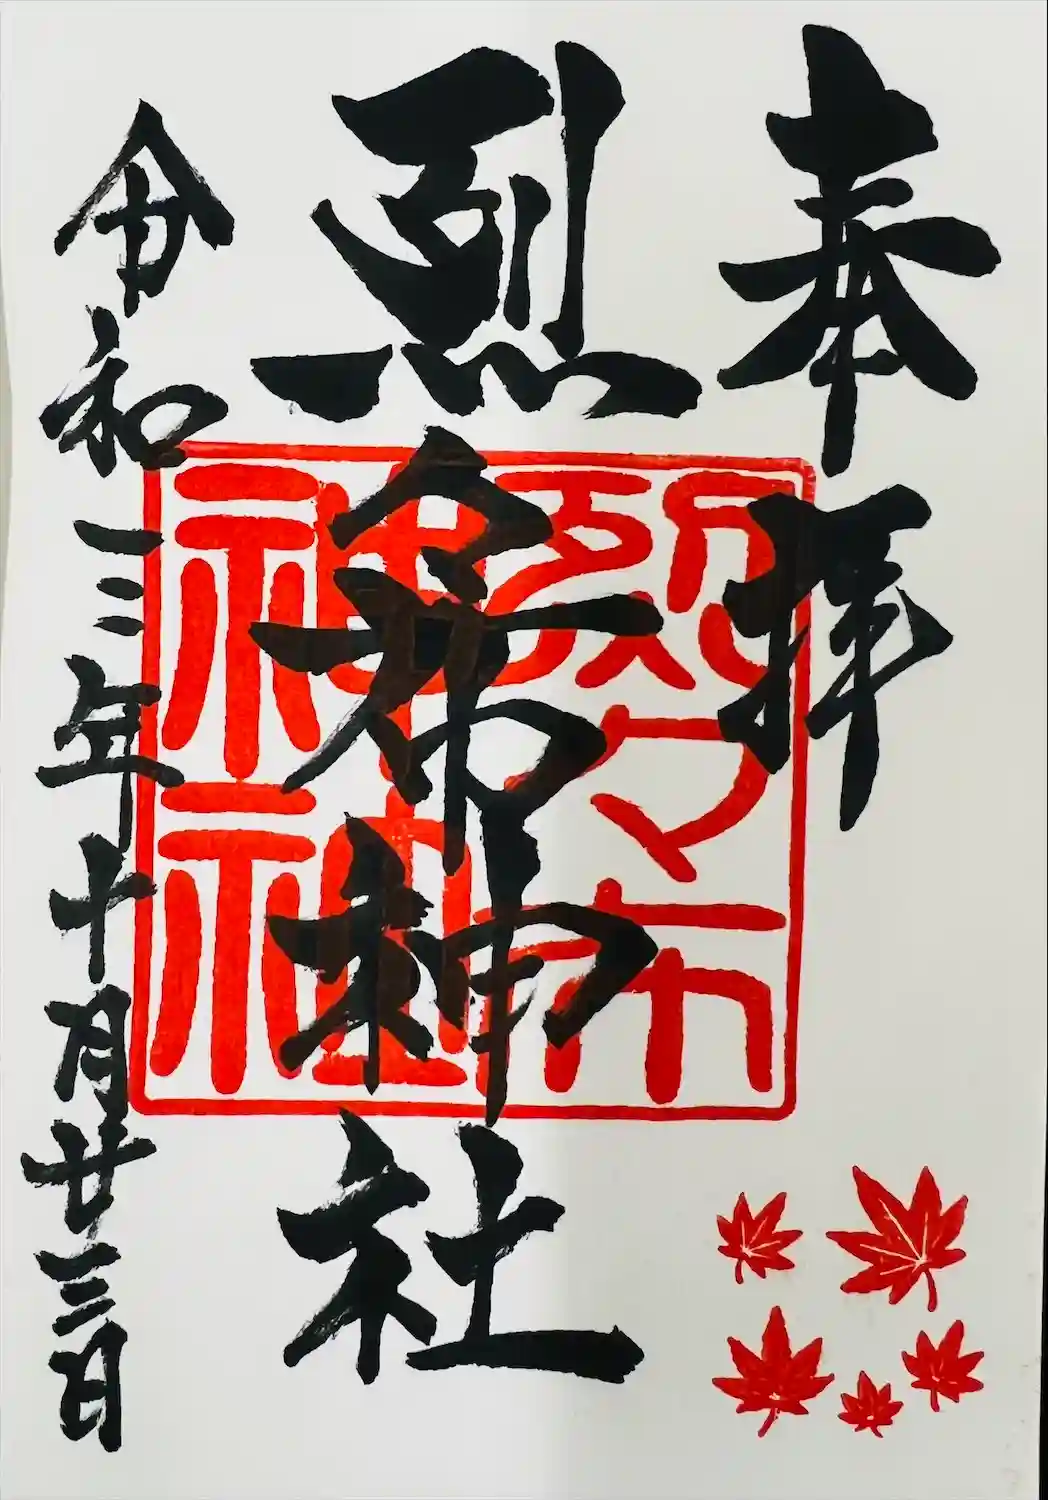 奉拝
烈々布神社
令和三年十月廿三日
烈々布
神社